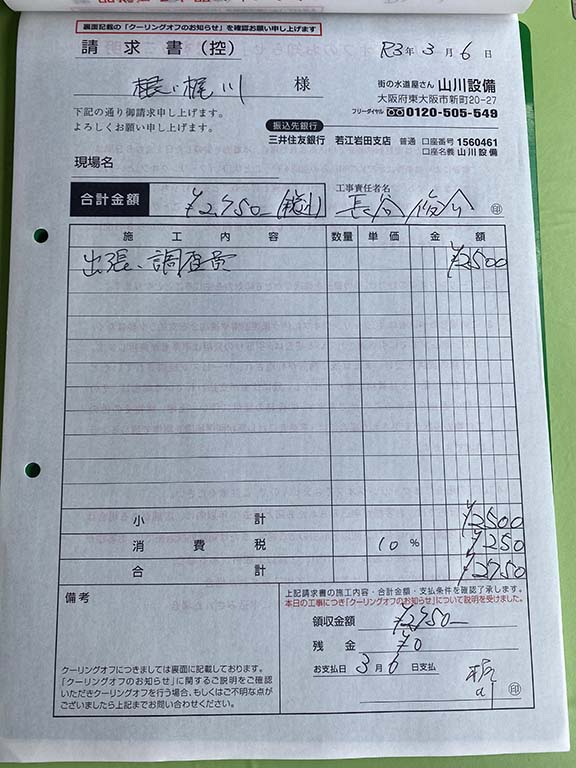 裏面記載の「クーリングオフのお知らせ」を確認お願い申し上げます
請求書(控)
R3年3月6日
梶川 様
街の水道屋さん 山川設備
大阪府東大阪市新町20-27
フリーダイヤル 0120-505-549
下記の通り御請求申し上げます。
よろしくお願い申し上げます。
振込先銀行
三井住友銀行 若江岩田支店 普通 口座番号 1560461
口座名義 山川設備
現場名
合計金額 ¥2,750-(税込)
工事責任者名
長谷 印
施工内容 数量 単価 金額
出張、調査費 ¥2500
小計 ¥2500
消費税 10% ¥250
合計 ¥2750
備考
クーリングオフにつきましては裏面に記載しております。
「クーリングオフのお知らせ」に関するご説明をご確認
いただきクーリングオフを行う場合、もしくはご不明な点が
ございましたら上記までお問い合わせください。
上記請求書の施工内容・合計金額・支払条件を確認了承します。
本日の工事につき「クーリングオフのお知らせ」について説明を受けました。
領収金額 ¥2,750-
残金 ¥0
お支払日 3月6日支払
印